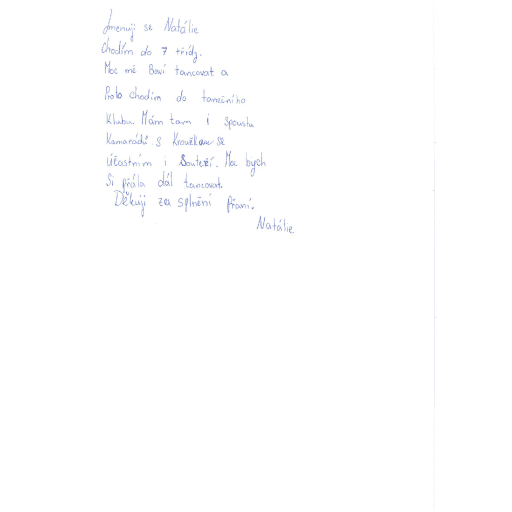 Jmenuji se Natálie
Chodím do 7 třídy.
Moc mě Baví tancovat a
Proto chodím do tanečního
Klubu Mám tam i spoustu
Kamarádů. s Kroužkem se
účastním i Soutěží. Moc bych
Si přála dál tancovat.
Děkuji za splnění přání.
Natálie